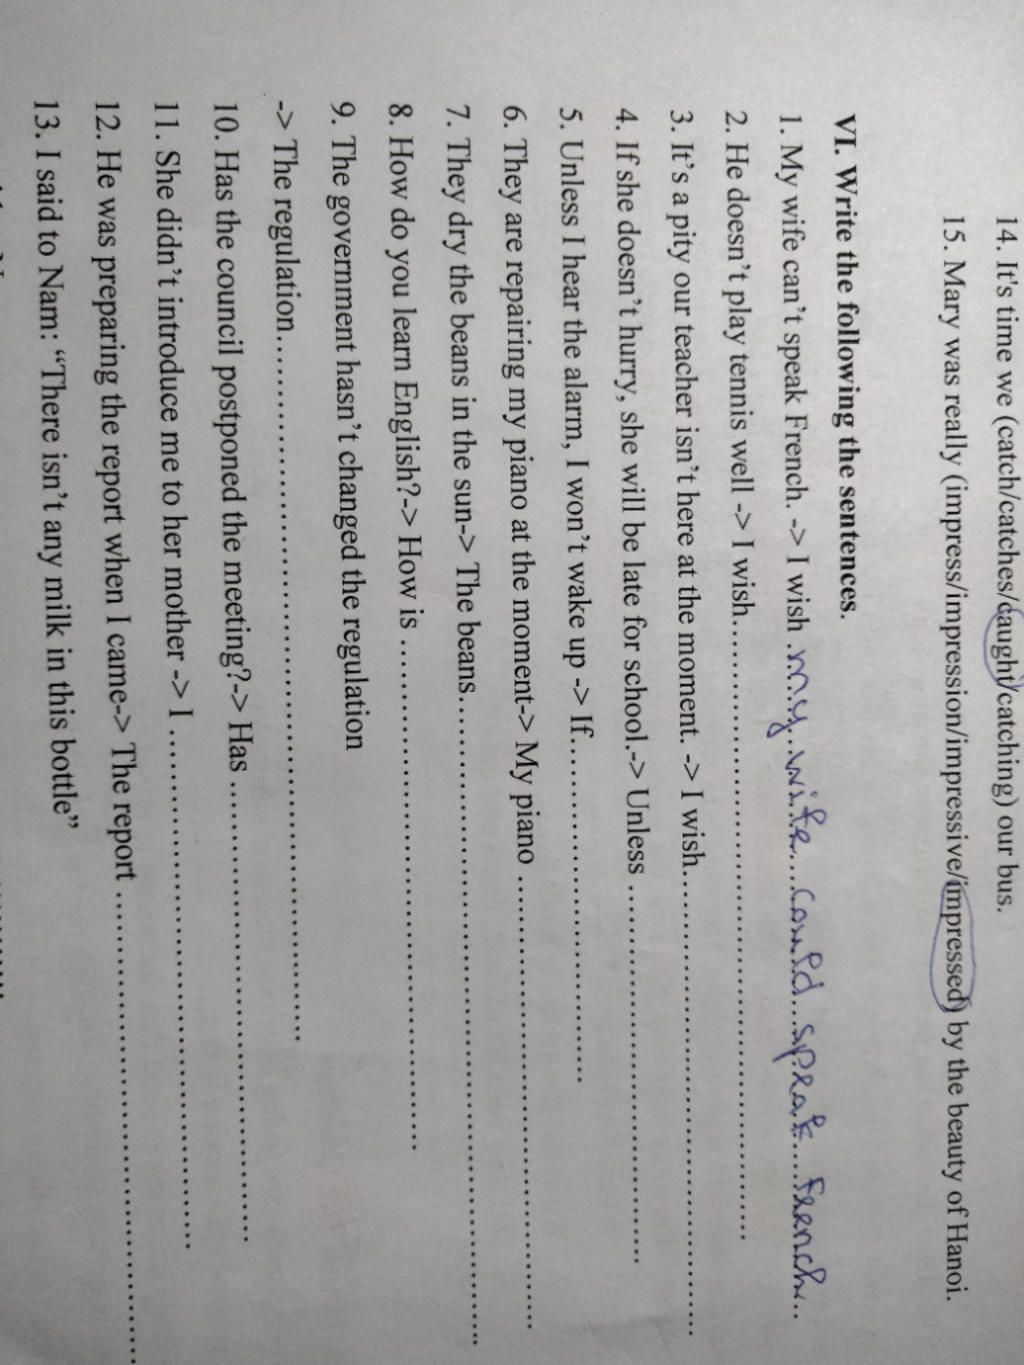 14. It's time we (catch/catches/caught/catching) our bus.
15. Mary was really (impress/impression/impressive/impressed) by the beauty of Hanoi.
VI. Write the following the sentences.
1. My wife can't speak French. -> I wish my wife could speak French
2. He doesn't play tennis well -> I wish..........
3. It's a pity our teacher isn't here at the moment. -> I wish..........
4. If she doesn't hurry, she will be late for school.-> Unless ..........
5. Unless I hear the alarm, I won't wake up -> If..........
6. They are repairing my piano at the moment-> My piano ..........
7. They dry the beans in the sun-> The beans..........
8. How do you learn English?-> How is ..........
9. The government hasn't changed the regulation
-> The regulation..........
10. Has the council postponed the meeting?-> Has ..........
11. She didn't introduce me to her mother -> I ..........
12. He was preparing the report when I came-> The report ..........
13. I said to Nam: “There isn't any milk in this bottle”